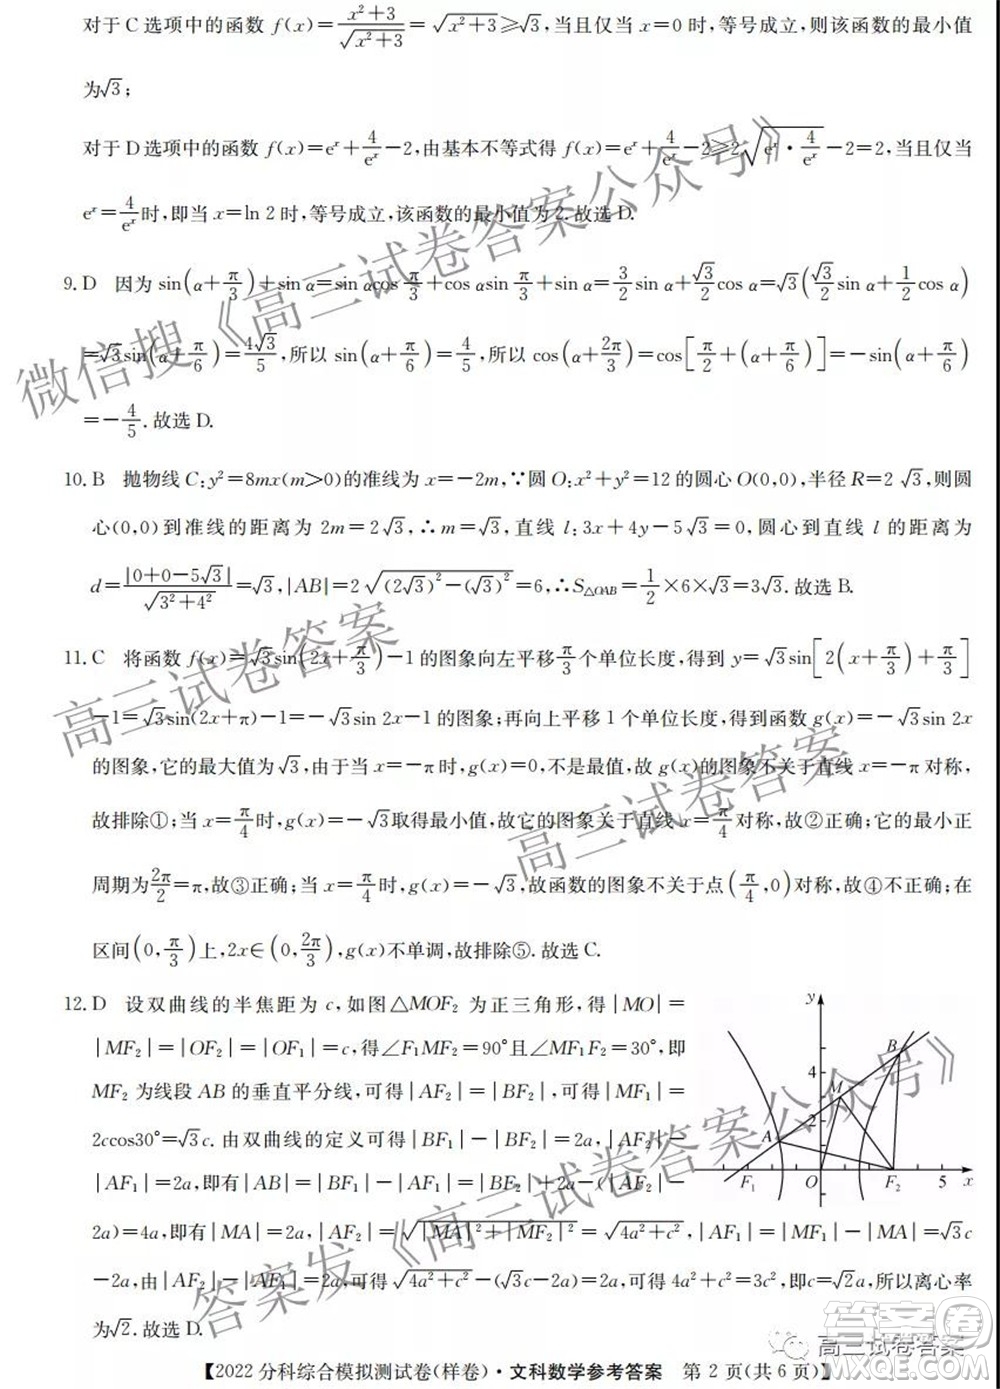 对于C选项中的函数 f(x)=(x²+3)/√(x²+3)=√(x²+3)≥√3,当且仅当 x=0 时,等号成立,则该函数的最小值
为√3;
对于D选项中的函数 f(x)=eˣ+4/eˣ-2,由基本不等式得 f(x)=eˣ+4/eˣ-2≥2√(eˣ·4/eˣ)-2=2,当且仅当
eˣ=4/eˣ时,即当 x=ln 2时,等号成立,该函数的最小值为2.故选D.
9. D 因为 sin(α+π/3)+sin α=sin αcos π/3+cos αsin π/3+sin α=3/2 sin α+√3/2 cos α=√3(√3/2 sin α+1/2 cos α)
=√3sin(α+π/6)=4√3/5,所以 sin(α+π/6)=4/5,所以 cos(α+2π/3)=cos[π/2+(α+π/6)]=-sin(α+π/6)
=-4/5.故选D.
10. B 抛物线 C:y²=8mx(m>0)的准线为 x=-2m,∵圆 O:x²+y²=12 的圆心 O(0,0),半径 R=2√3,则圆
心(0,0)到准线的距离为 2m=2√3,∴m=√3,直线 l:3x+4y-5√3=0,圆心到直线 l 的距离为
d=|0+0-5√3|/√(3²+4²)=√3,|AB|=2√((2√3)²-(√3)²)=6,∴S△OAB=1/2×6×√3=3√3.故选B.
11. C 将函数 f(x)=√3sin(2x+π/3)-1的图象向左平移π/3个单位长度,得到 y=√3sin[2(x+π/3)+π/3]
-1=√3sin(2x+π)-1=-√3sin 2x-1的图象;再向上平移1个单位长度,得到函数 g(x)=-√3sin 2x
的图象,它的最大值为√3,当 x=-π时,g(x)=0,不是最值,故 g(x)的图象不关于直线 x=-π 对称,
故排除①;当 x=π/4时,g(x)=-√3取得最小值,故它的图象关于直线 x=π/4 对称,故②正确;它的最小正
周期为2π/2=π,故③正确;当 x=π/4时,g(x)=-√3,故函数的图象不关于点(π/4,0)对称,故④不正确;在
区间(0,π/3)上,2x∈(0,2π/3),g(x)不单调,故排除⑤.故选C.
12. D 设双曲线的半焦距为 c,如图△MOF₂ 为正三角形,得|MO|=
|MF₂|=|OF₂|=|OF₁|=c,得∠F₁MF₂=90°且∠MF₁F₂=30°,即
MF₂ 为线段 AB 的垂直平分线,可得|AF₂|=|BF₂|,可得|MF₁|=
2ccos30°=√3c.由双曲线的定义可得|BF₁|-|BF₂|=2a,|AF₂|-
|AF₁|=2a,即有|AB|=|BF₁|-|AF₁|=|BF₂|+2a-(|AF₂|-
2a)=4a,即有|MA|=2a,|AF₂|=√(|MA|²+|MF₂|²)=√(4a²+c²),|AF₁|=|MF₁|-|MA|=√3c
-2a,由|AF₂|-|AF₁|=2a,可得√(4a²+c²)-(√3c-2a)=2a,可得4a²+c²=3c²,即c=√2a,所以离心率
为√2.故选D.
y
4
2
B
M
A
F₁
O
F₂
5
x
【2022分科综合模拟测试卷(样卷)·文科数学参考答案 第2页(共6页)】
微信搜《高三试卷答案公众号》
高三试卷答案
高三试卷答案
答案发《高三试卷答案公众号》
高三试卷答案
答案圈
MXQE.COM